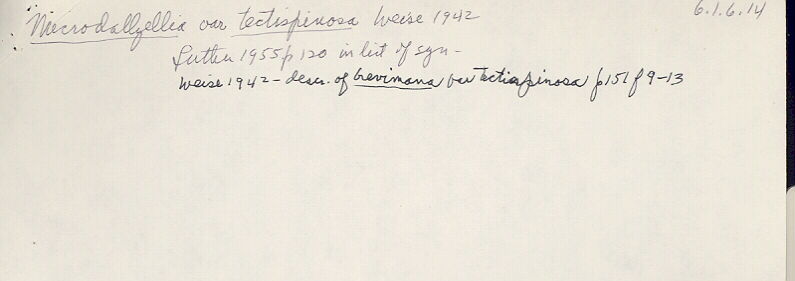 6.1.6.14
Microdallyellia var tectispinosa Weise 1942
Luther 1955 p 120 in list of syn-
Weise 1942 - descr. of brevimana var tectispinosa p151 f 9-13